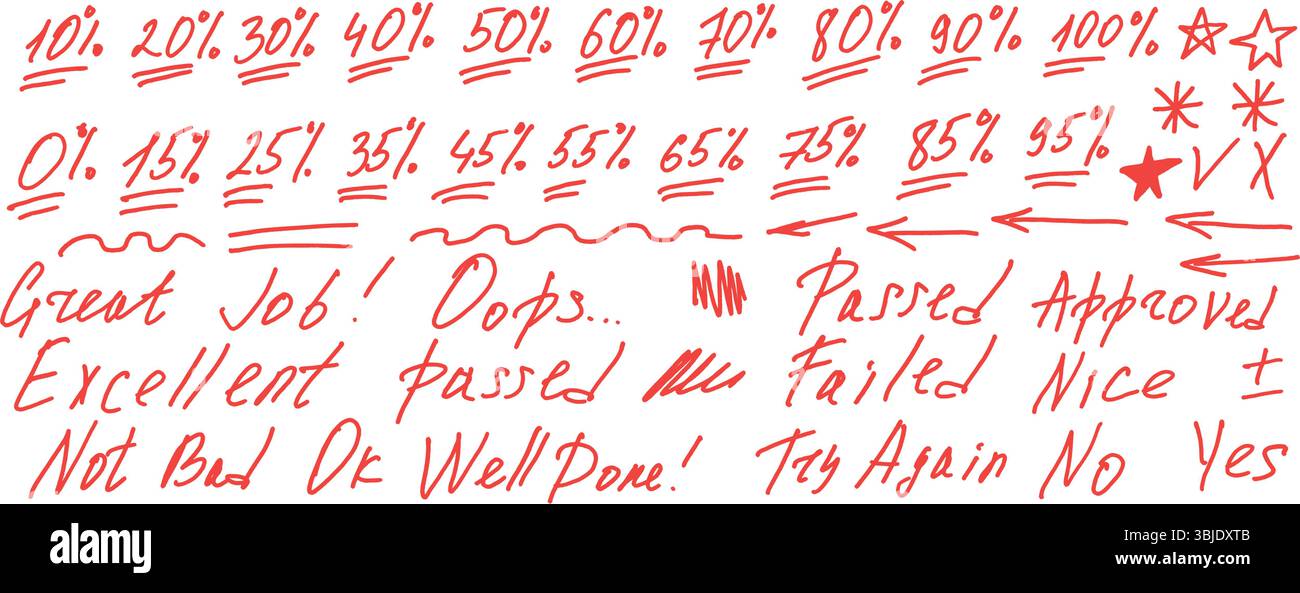 10% 20% 30% 40% 50% 60% 70% 80% 90% 100%
0% 15% 25% 35% 45% 55% 65% 75% 85% 95%
Great Job! Oops... Passed Approved
Excellent passed Failed Nice ±
Not Bad Ok Well Done! Try Again No Yes
alamy
Image ID: 3BJDXTB
www.alamy.com